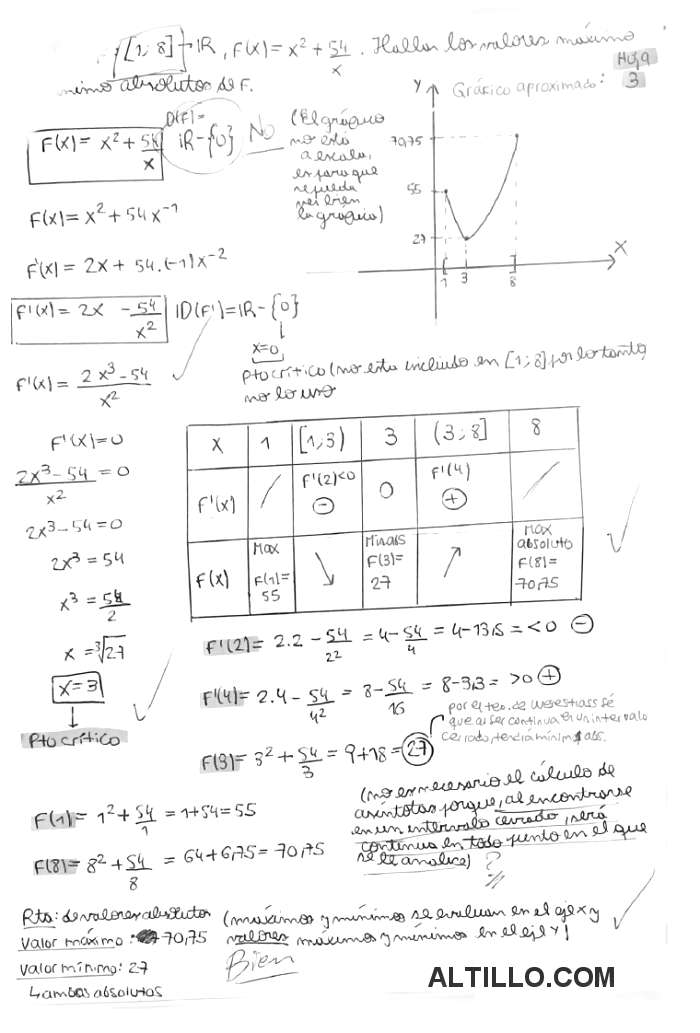 [1; 8] → IR, F(x) = x² + 54/x . Hallar los valores máximo
nimo absolutos de F.
Hoja 3
F(x) = x² + 54/x
D(F) = IR - {0} NO
(El gráfico
no está
a escala,
es para que
se pueda
ver bien
la gráfica)
Gráfico aproximado:
Y
70,75
55
27
1 3 8
X
F(x) = x² + 54x⁻¹
F'(x) = 2x + 54.(-1)x⁻²
F'(x) = 2x - 54/x² ID(F') = IR - {0}
x=0
Pto crítico (no está incluido en [1; 8] por lo tanto,
no lo uso
F'(x) = 2x³-54/x²
F'(x)=0
2x³-54/x² = 0
2x³-54=0
2x³ = 54
x³ = 54/2
x = ³√27
x=3
Pto crítico
X 1 [1;3) 3 (3;8] 8
F'(x) / F'(2)<0 - 0 F'(4) + /
F(x) Max F(1)= 55 ↘ Min abs F(3)= 27 ↗ Max absoluto F(8)= 70,75
F'(2) = 2.2 - 54/2² = 4 - 54/4 = 4-13,5 = <0 -
F'(4) = 2.4 - 54/4² = 8 - 54/16 = 8-3,3 = >0 +
por el teo. de Weierstrass sé
que al ser continua en un intervalo
cerrado, tendrá mínimo abs.
F(3) = 3² + 54/3 = 9+18 = 27
F(1) = 1² + 54/1 = 1+54 = 55
F(8) = 8² + 54/8 = 64+6,75 = 70,75
(no es necesario el cálculo de
asíntotas porque, al encontrarse
en un intervalo cerrado, será
continua en todo punto en el que
se la analice) ?
Rta: de valores absolutos (máximos y mínimos se evaluan en el eje x y
valores máximos y mínimos en el eje y)
Valor máximo: 70,75
Valor mínimo: 27
ambos absolutos
Bien
ALTILLO.COM